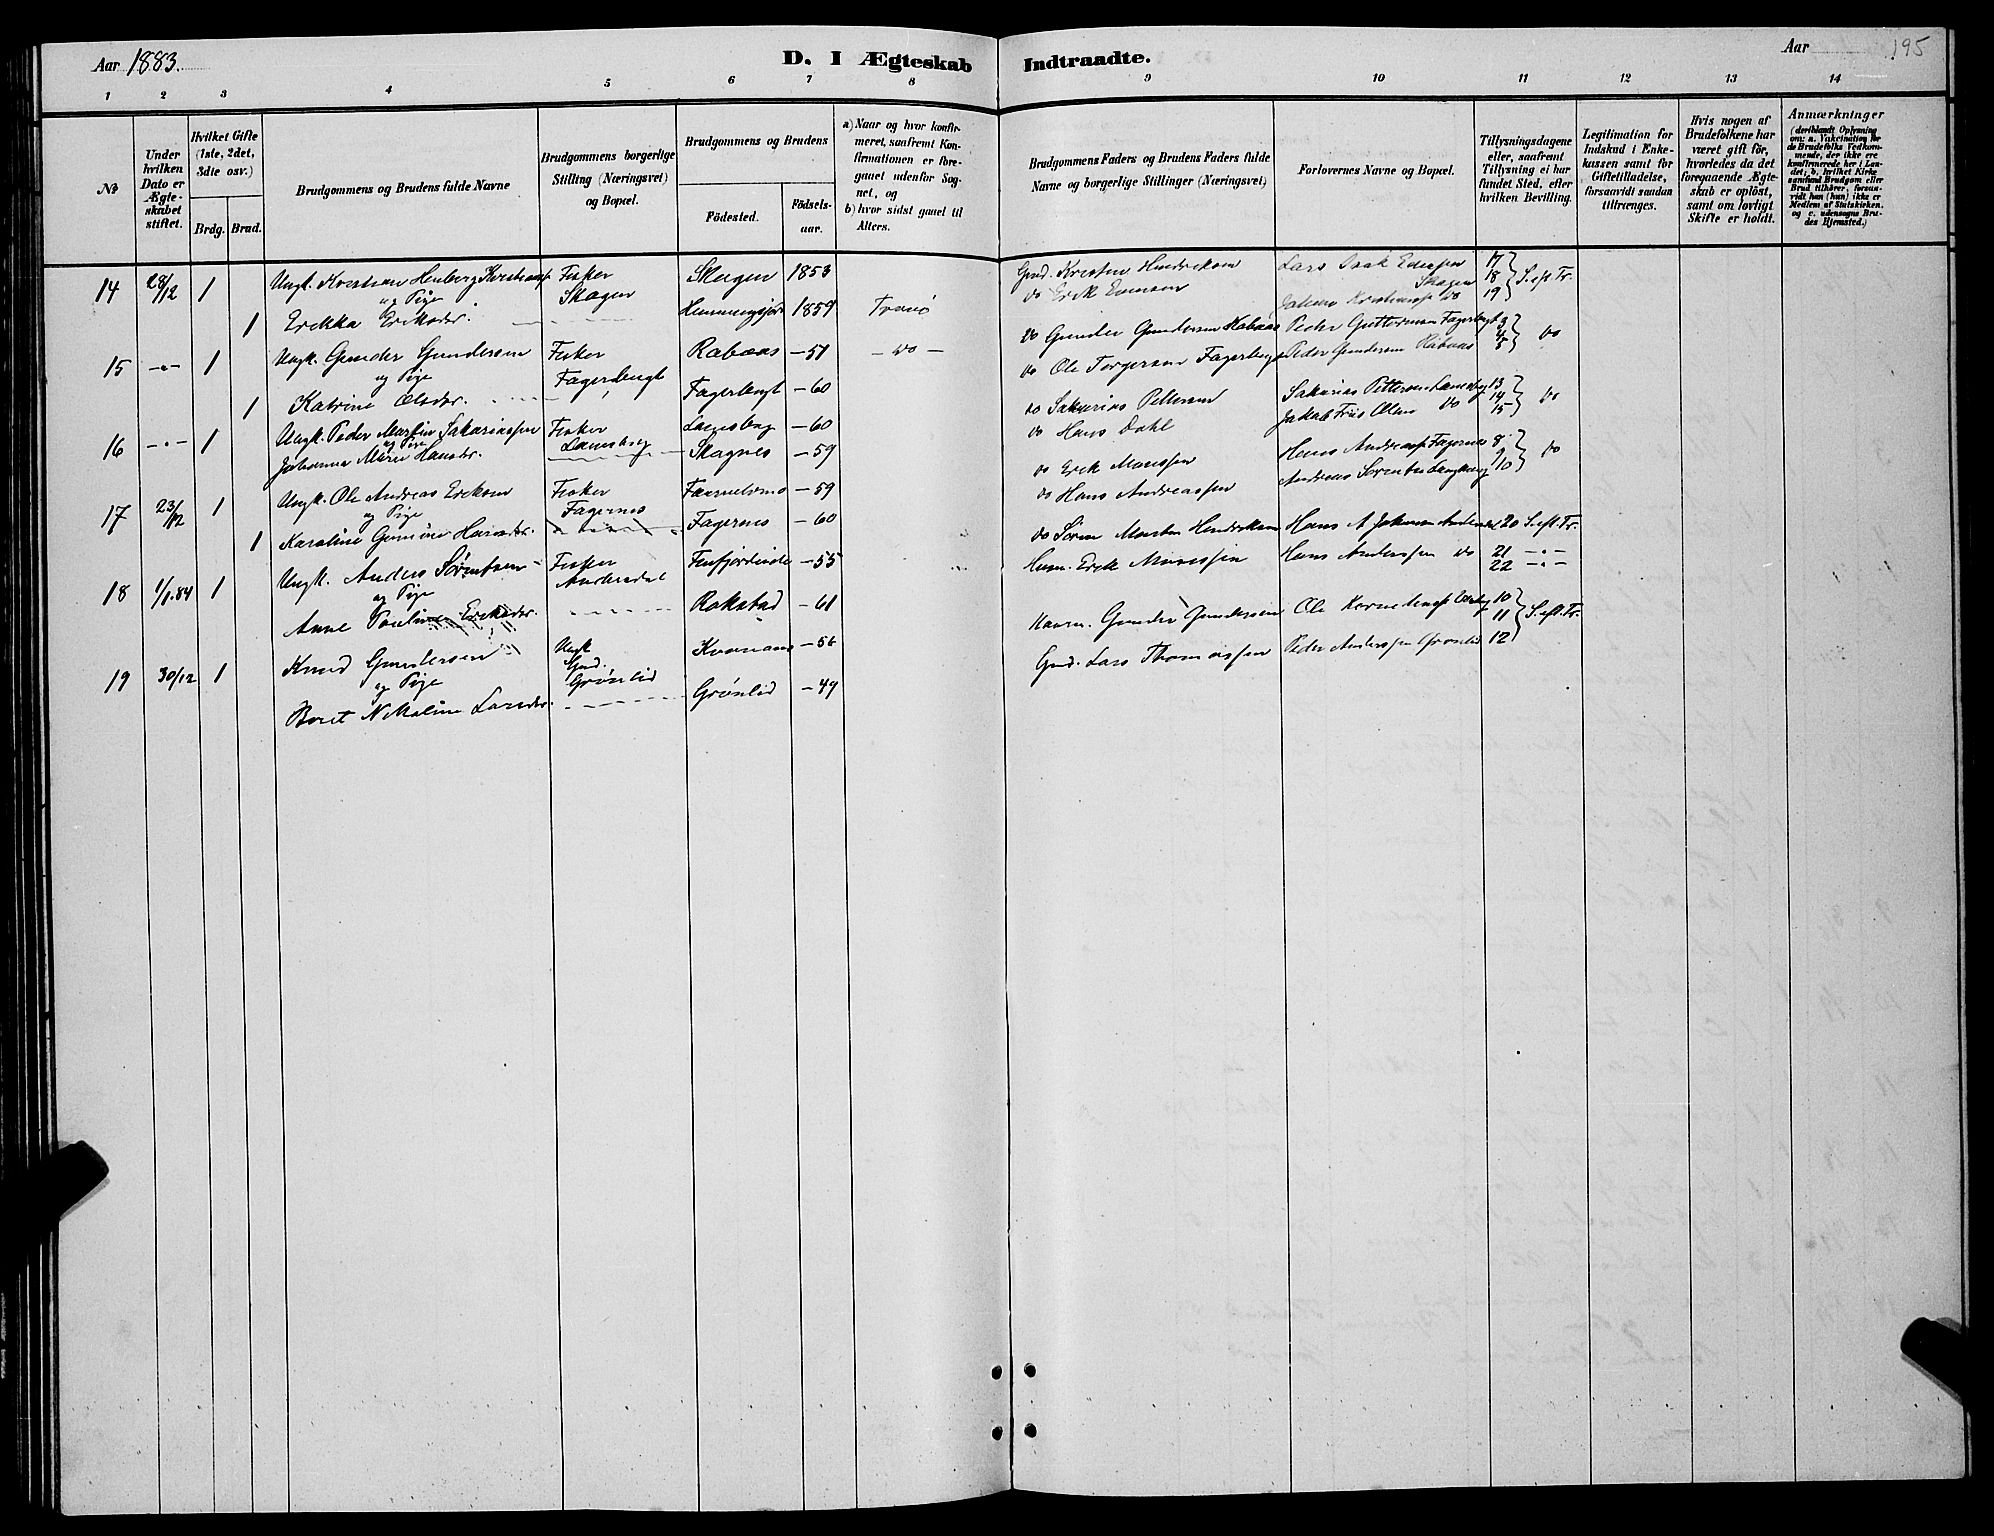 Aar 1883.
D. I Ægteskab Indtraadte.
Aar 195
1 2 3 4 5 6 7 8 9 10 11 12 13 14
No
Under hvilken Dato er Ægteskabet stiftet.
Hvilket Gifte (1ste, 2det, 3die osv.)
Brdg. Brud.
Brudgommens og Brudens fulde Navne
Brudgommens borgerlige Stilling (Næringsvei) og Bopæl.
Brudgommens og Brudens
Födested. Födselsaar.
a) Naar og hvor konfirmeret, saafremt Konfirmationen er foregaaet udenfor Sognet, og
b) hvor sidst gaaet til Alters.
Brudgommens Faders og Brudens Faders fulde Navne og borgerlige Stillinger (Næringsvei)
Forlovernes Navne og Bopæl.
Tillysningsdagene eller, saafremt Tillysning ei har fundet Sted, efter hvilken Bevilling.
Legitimation for Indskud i Enkekassen samt for Giftetilladelse, forsaavidt saadan tiltrænges.
Hvis nogen af Brudefolkene har været gift för, hvorledes da det foregaaende Ægteskab er oplöst, samt om lovligt Skifte er holdt.
Anmærkninger (deriblandt Oplysning om: a. Vakcination for de Brudefolks Vedkommende, der ikke ere konfirmerede her i Landet; b. hvilket Kirkesamfund Brudgom eller Brud tilhörer, forsaavidt han (hun) ikke er Medlem af Statskirken. og c. udensogns Brudes Hjemsted.)
14 28/12 1 Ungk. Kristian Henberg Kristians Fisker Skagen 1853 Gmd. Kristen Hendriksen Lars Isak Edissen Skagen 17 18 19 S. eft Tr.
og Pige Skagen
1 Erikka Eriksdr. Hemmingsjord 1859 Tranö do Erik Evensen Johan Kristians do
15 -"- 1 Ungk. Gunder Gundersen Fisker Rabaas - 51 - do - do Gunder Gundersen Rabaas Peder Guttormsen Fagerbugt 3 4 5 do
og Pige Fagerbugt
1 Katrine Olsdr. Fagerbugt - 60 do Ole Torgersen Fagerbugt Peder Gundersen Rabaas
16 -"- 1 Ungk. Peder Martin Sakariassen Fisker Lanesbog - 60 do Sakarias Pettersen Sakarias Pettersen Lanesbog 13 14 15 do
og Pige
Johanna Marie Hansdr. Lanesbog Skognes - 59 do Hans Dahl Jakob Friis Olsen do
17 23/12 1 Ungk. Ole Andreas Eriksen Fisker - 59 do Erik Monssen Hans Andreas Fagernes 8 9 10 do
og Pige Fagernes
1 Karoline Hansdr. Fagernes - 60 do Hans Andreassen Andreas Sørentsen
18 1/1.84 1 Ungk. Anders Sørentsen Fisker - 55 do Sören Morten Hendriksen Hans A Johansen Andersdal 20 S. eft. Tr.
og Pige Andersdal
Anne Pauline Eriksdr. Rakstad - 61 Husm. Erik Monssen Hans Anderssen do 21 -"- 22 -"-
19 30/12 1 Knud Gundersen Ungk. Gmd. Kvanaas - 56 Husm. Gunder Gundersen Ole 10 11 12 S. eft. Tr.
og Pige Grönlid
Beret Nikoline Larsdr. Grönlid - 49 Gmd. Lars Thomassen Peder Anderssen Grönlid